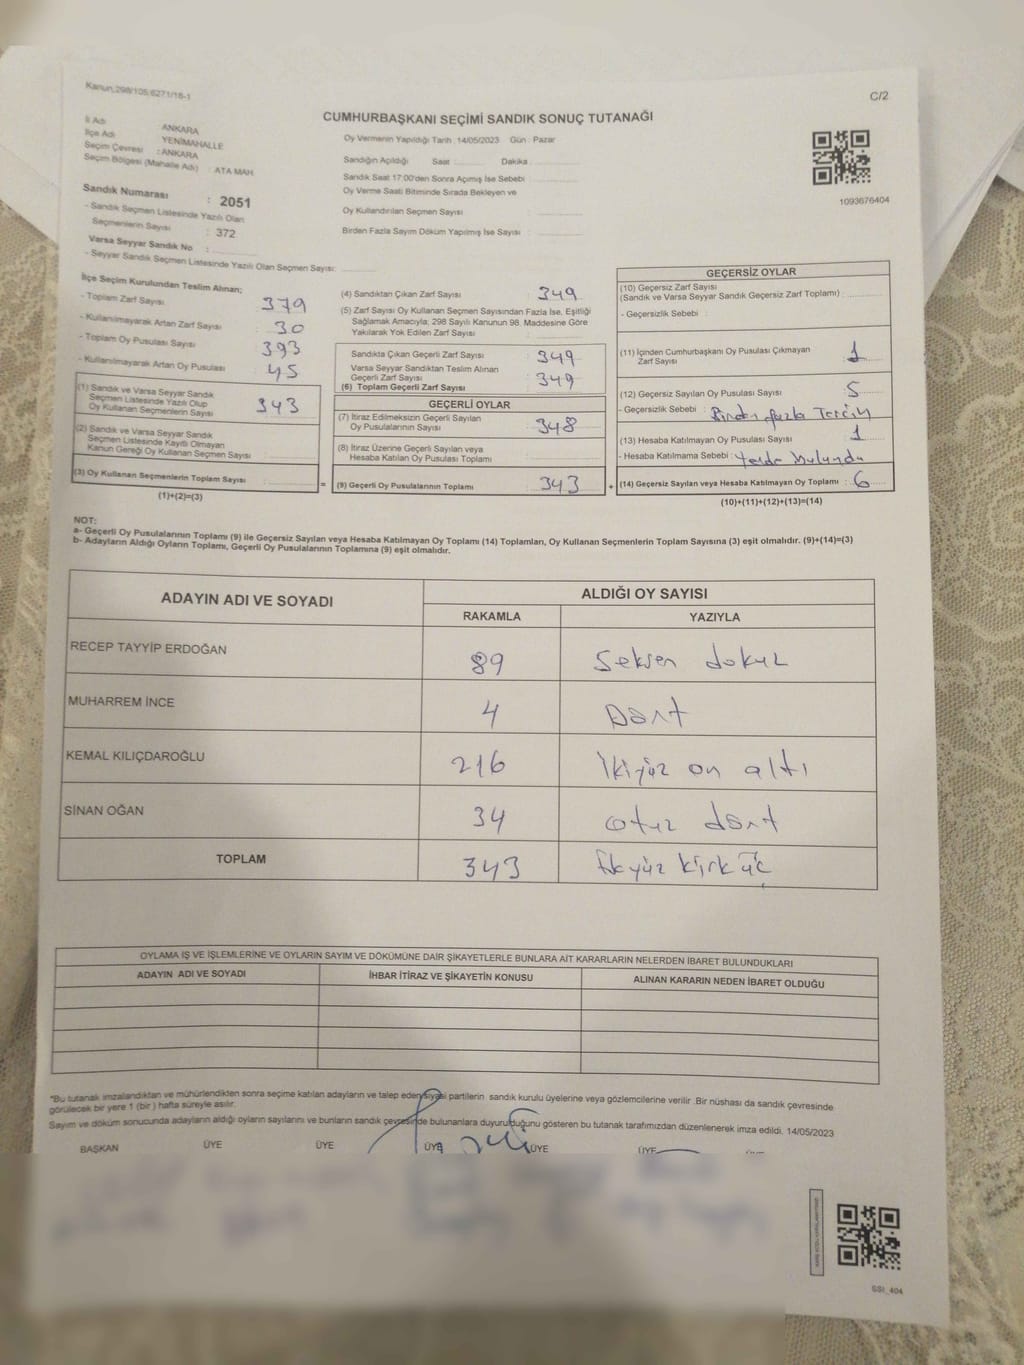 Kanun,298/105,6271/16-1
C/2
CUMHURBAŞKANI SEÇİMİ SANDIK SONUÇ TUTANAĞI
İl Adı ANKARA
İlçe Adı YENİMAHALLE
Seçim Çevresi : ANKARA
Seçim Bölgesi (Mahalle Adı) : ATA MAH
Sandık Numarası : 2051
- Sandık Seçmen Listesinde Yazılı Olan
Seçmenlerin Sayısı : 372
Varsa Seyyar Sandık No :
- Seyyar Sandık Seçmen Listesinde Yazılı Olan Seçmen Sayısı:
Oy Vermenin Yapıldığı Tarih :14/05/2023 Gün : Pazar
Sandığın Açıldığı Saat Dakika
Sandık Saat 17:00'den Sonra Açımış İse Sebebi :
Oy Verme Saati Bitiminde Sırada Bekleyen ve
Oy Kullandırılan Seçmen Sayısı :
Birden Fazla Sayım Döküm Yapılmış İse Sayısı :
1093676404
İlçe Seçim Kurulundan Teslim Alınan;
- Toplam Zarf Sayısı 379
- Kullanılmayarak Artan Zarf Sayısı 30
- Toplam Oy Pusulası Sayısı 393
- Kullanılmayarak Artan Oy Pusulası 45
(1) Sandık ve Varsa Seyyar Sandık
Seçmen Listesinde Yazılı Olup
Oy Kullanan Seçmenlerin Sayısı 343
(2) Sandık ve Varsa Seyyar Sandık
Seçmen Listesinde Kayıtlı Olmayan
Kanun Gereği Oy Kullanan Seçmen Sayısı
(3) Oy Kullanan Seçmenlerin Toplam Sayısı
=
(1)+(2)=(3)
(4) Sandıktan Çıkan Zarf Sayısı : 349
(5) Zarf Sayısı Oy Kullanan Seçmen Sayısından Fazla İse, Eşitliği
Sağlamak Amacıyla; 298 Sayılı Kanunun 98. Maddesine Göre
Yakılarak Yok Edilen Zarf Sayısı
Sandıkta Çıkan Geçerli Zarf Sayısı 349
Varsa Seyyar Sandıktan Teslim Alınan
Geçerli Zarf Sayısı 349
(6) Toplam Geçerli Zarf Sayısı
GEÇERLİ OYLAR
(7) İtiraz Edilmeksizin Geçerli Sayılan
Oy Pusulalarının Sayısı 348
(8) İtiraz Üzerine Geçerli Sayılan veya
Hesaba Katılan Oy Pusulası Toplamı
(9) Geçerli Oy Pusulalarının Toplamı 343
+
GEÇERSİZ OYLAR
(10) Geçersiz Zarf Sayısı
(Sandık ve Varsa Seyyar Sandık Geçersiz Zarf Toplamı) :
- Geçersizlik Sebebi :
(11) İçinden Cumhurbaşkanı Oy Pusulası Çıkmayan
Zarf Sayısı 1
(12) Geçersiz Sayılan Oy Pusulası Sayısı 5
- Geçersizlik Sebebi : Birden fazla Tercih
(13) Hesaba Katılmayan Oy Pusulası Sayısı 1
- Hesaba Katılmama Sebebi : Yerde bulundu
(14) Geçersiz Sayılan veya Hesaba Katılmayan Oy Toplamı : 6
(10)+(11)+(12)+(13)=(14)
NOT:
a- Geçerli Oy Pusulalarının Toplamı (9) ile Geçersiz Sayılan veya Hesaba Katılmayan Oy Toplamı (14) Toplamları, Oy Kullanan Seçmenlerin Toplam Sayısına (3) eşit olmalıdır. (9)+(14)=(3)
b- Adayların Aldığı Oyların Toplamı, Geçerli Oy Pusulalarının Toplamına (9) eşit olmalıdır.
ADAYIN ADI VE SOYADI ALDIĞI OY SAYISI
RAKAMLA YAZIYLA
RECEP TAYYİP ERDOĞAN 89 Seksen dokuz
MUHARREM İNCE 4 Dört
KEMAL KILIÇDAROĞLU 216 İkiyüz on altı
SİNAN OĞAN 34 otuz dört
TOPLAM 343 üçyüz kırk üç
OYLAMA İŞ VE İŞLEMLERİNE VE OYLARIN SAYIM VE DÖKÜMÜNE DAİR ŞİKAYETLERLE BUNLARA AİT KARARLARIN NELERDEN İBARET BULUNDUKLARI
ADAYIN ADI VE SOYADI İHBAR İTİRAZ VE ŞİKAYETİN KONUSU ALINAN KARARIN NEDEN İBARET OLDUĞU
"Bu tutanak imzalandıktan ve mühürlendikten sonra seçime katılan adayların ve talep eden siyasi partilerin sandık kurulu üyelerine veya gözlemcilerine verilir .Bir nüshası da sandık çevresinde
görülecek bir yere 1 (bir ) hafta süreyle asılır.
Sayım ve döküm sonucunda adayların aldığı oyların sayılarını ve bunların sandık çevresinde bulunanlara duyurulduğunu gösteren bu tutanak tarafımızdan düzenlenerek imza edildi. 14/05/2023
BAŞKAN ÜYE ÜYE ÜYE ÜYE ÜYE
SSI_404